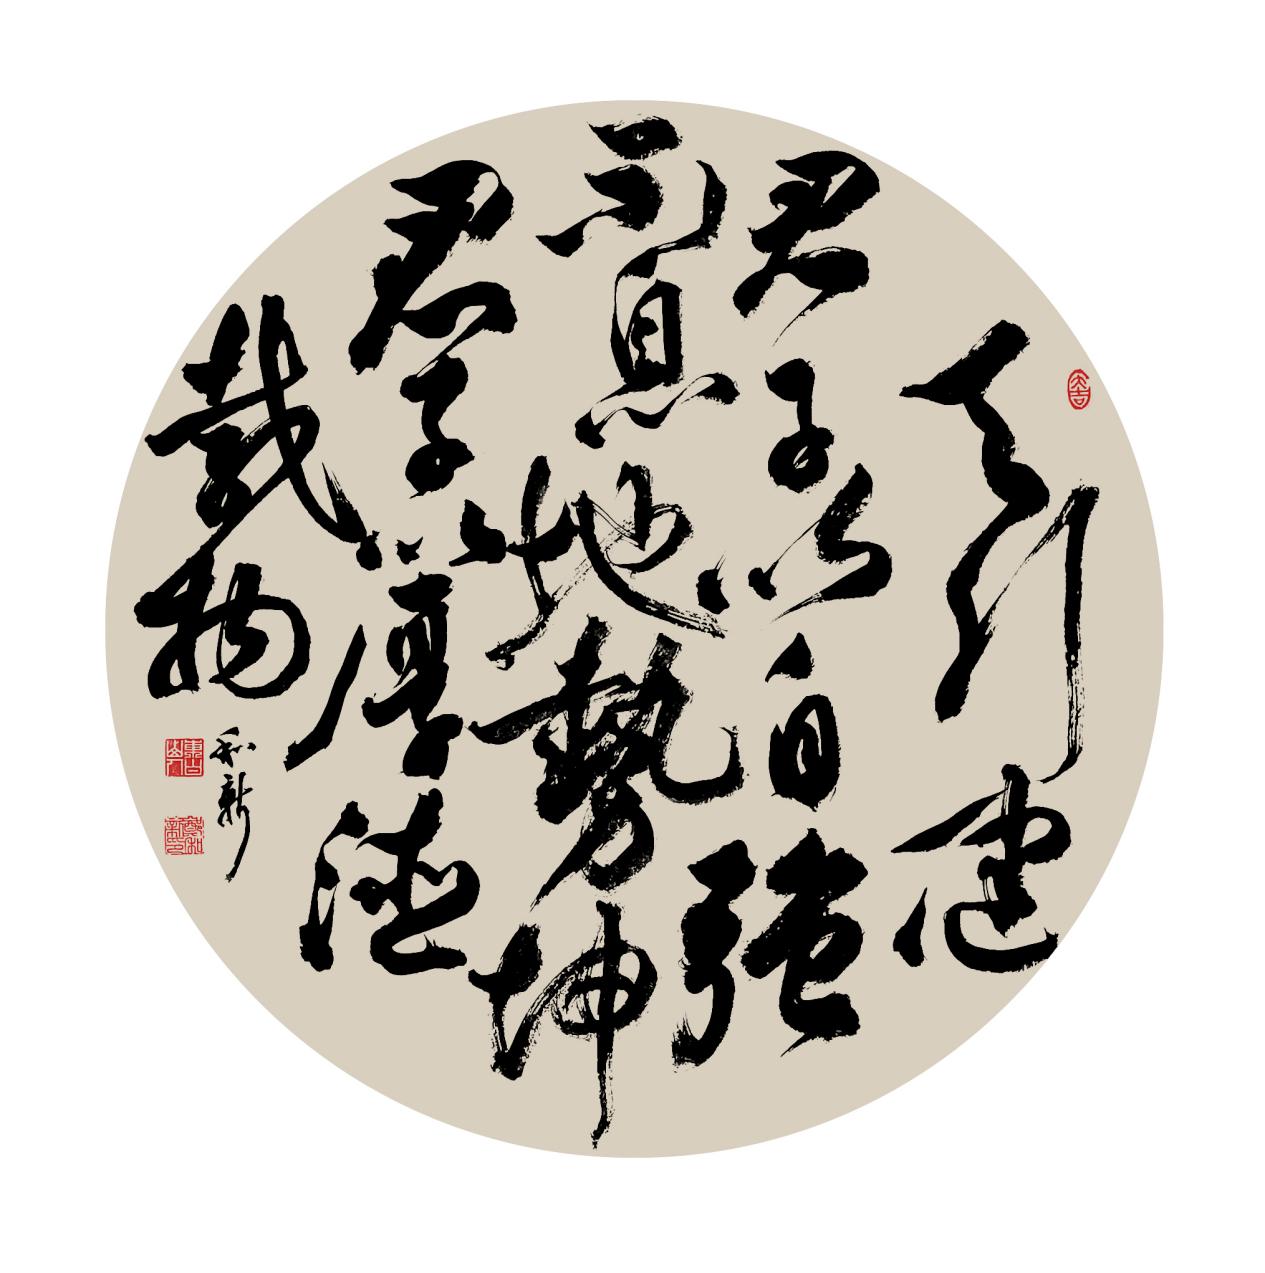 天行健
君子以自强
不息地势坤
君子以厚德
载物
和新